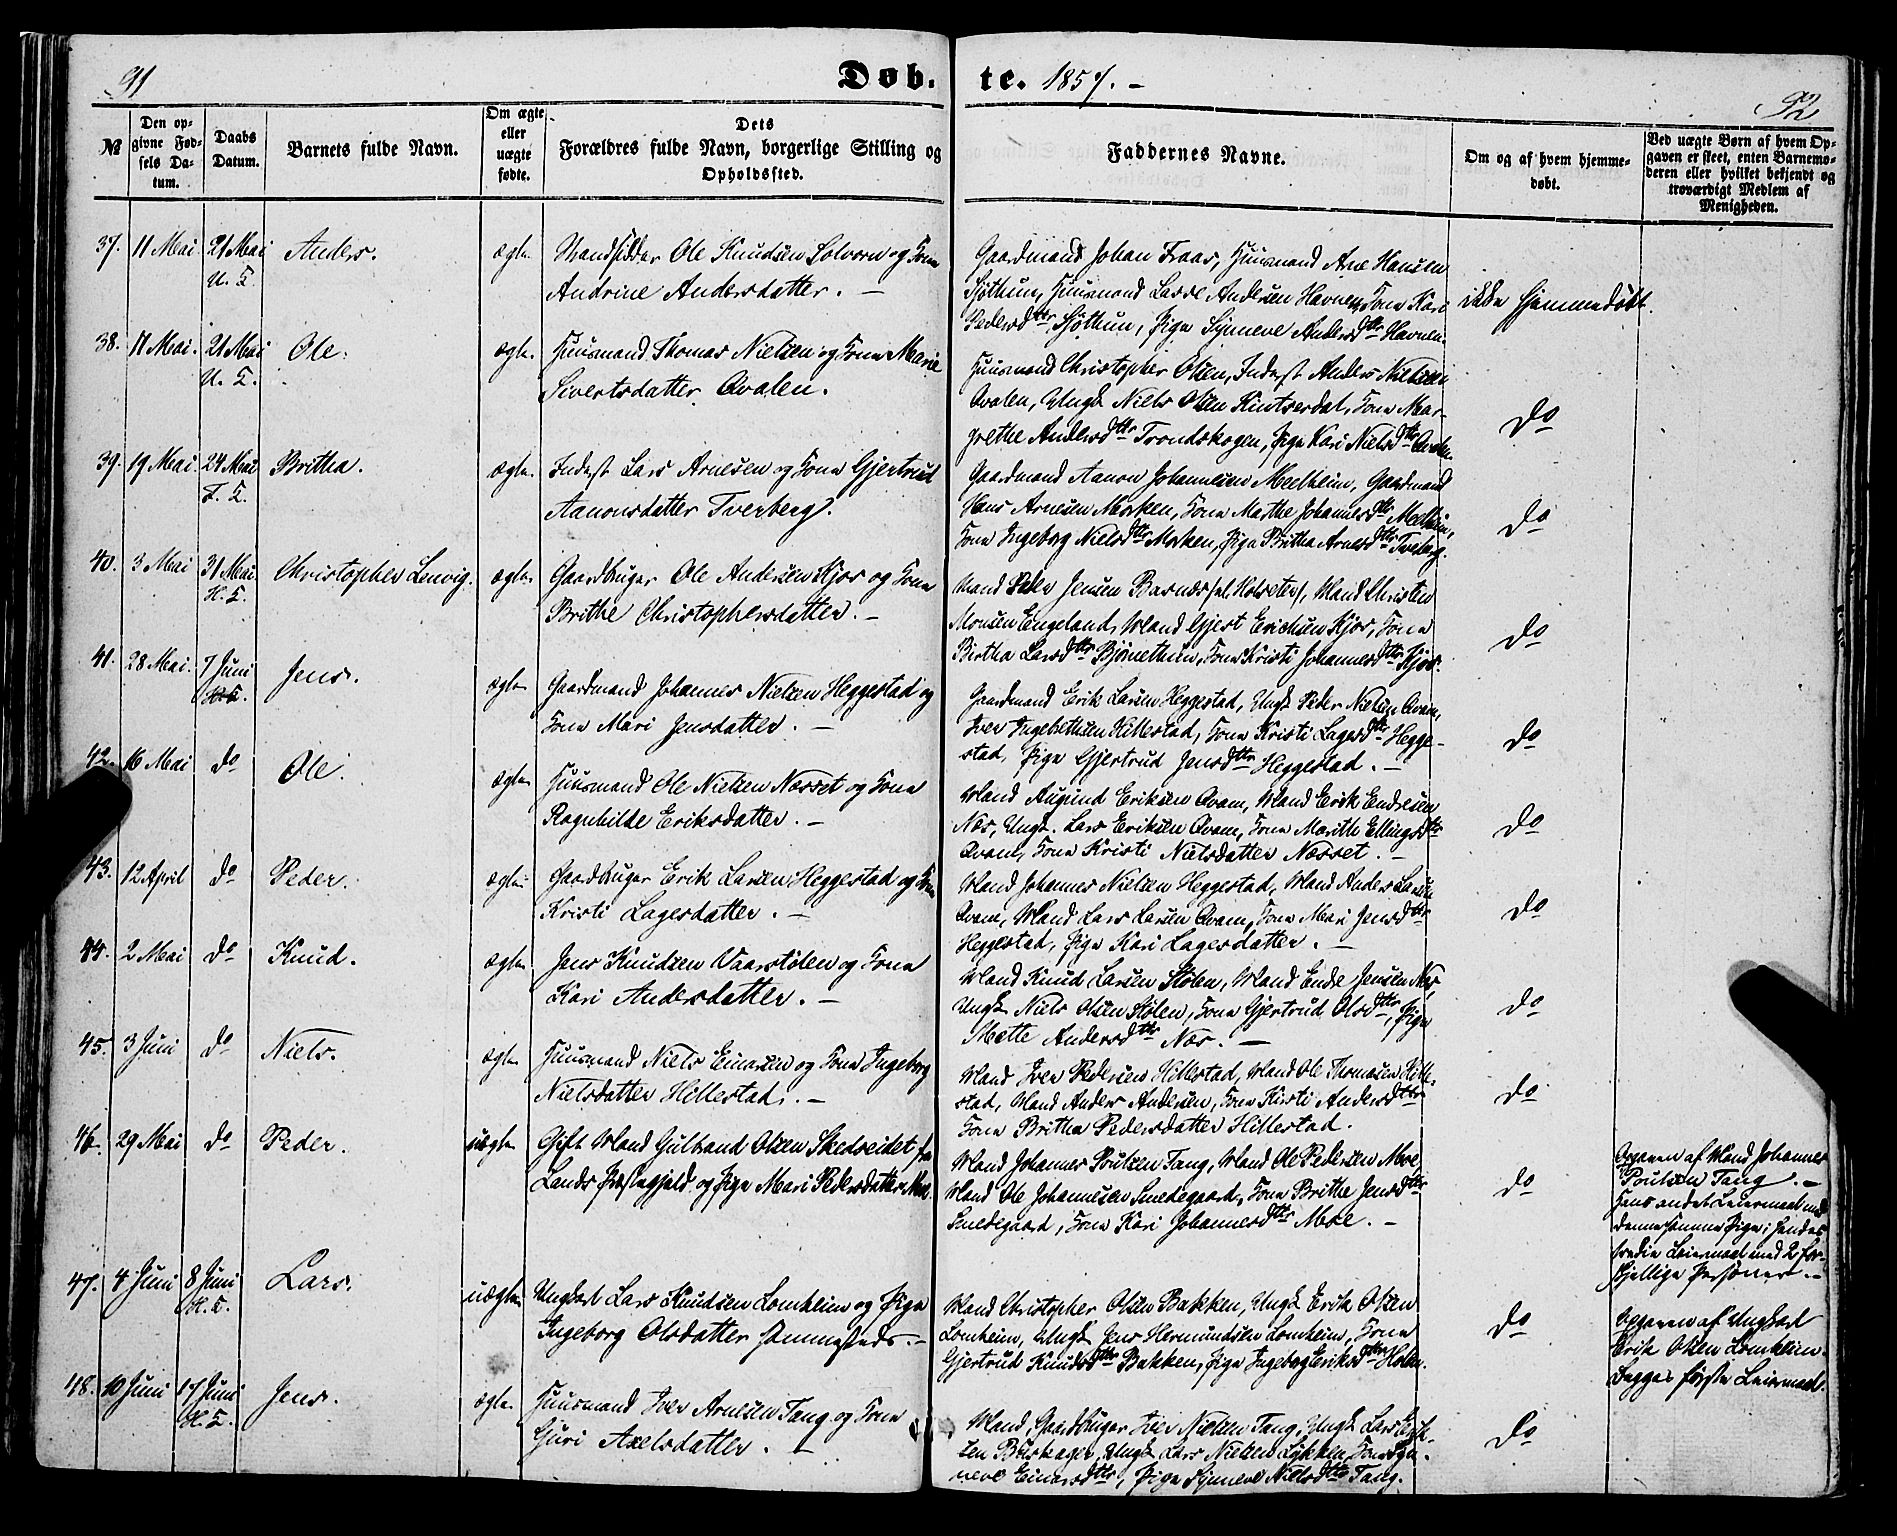 91
Døb-
te. 1857. -
92
№
Den opgivne Fødsels Datum.
Daabs Datum.
Barnets fulde Navn.
Om ægte eller uægte fødte.
Dets Forældres fulde Navn, borgerlige Stilling og Opholdssted.
Faddernes Navne.
Om og af hvem hjemmedøbt.
Ved uægte Børn af hvem Opgaven er skeet, enten Barnemoderen eller hvilket bekjendt og troværdigt Medlem af Menigheden.
37. 11 Mai 21 Mai Anders. ægte. Strandsidder Ole Knudsen Solvorn og Kone
U. K.
Andrine Andersdatter. -
Gaardmand Johan Fraas, Huusmand Arne Hansen
Sjøthun, Huusmand Lasse Andersen Havnen, Kone Kari
Pedersdttr Sjøthun, Pige Synneve Andersdttr Havnen.
ikke hjemmedøbt.
38. 11 Mai. 21 Mai Ole. ægte. Huusmand Thomas Nielsen og Kone Marie
U. K.
Sivertsdatter Qvalen.
Huusmand Christopher Olsen, Inderst Anders Nielsen
Qvalen, Ungk Niels Olsen Kintserdal, Kone Mar-
grethe Andersdttr Trondskogen, Pige Kari Nielsdttr Qvalen.
do
39. 19 Mai 24 Mai Britha. ægte. Inderst Lars Arnesen og Kone Gjertrud
F. K.
Aanonsdatter Tverberg.
Gaardmand Aanon Johannesen Melheim, Gaardmand
Hans Arnesen Morken, Kone Marthe Johannesdttr Melheim,
Kone Ingeborg Nielsdttr Morken, Pige Britha Arnesdttr Tverberg.
do
40. 3 Mai 31 Mai Christopher Lenvig. ægte. Gaardbruger Ole Andersen Kjos og Kone
H. K.
Brithe Christophersdatter. -
Mand Peder Jensen Barnes, Mand Christen
Monsen Engeland, Mand Gjest Erichsen Kjos, Kone
Birtha Larsdttr Bjørnethun, Kone Kristi Johannesdttr Kjos.
do
41. 28 Mai. 7 Juni Jens. ægte Gaardmand Johannes Nielsen Heggestad og
Kone Mari Jensdatter. -
Gaardmand Erik Larsen Heggestad, Ungk Peder Nielsen Qvam,
Iver Ingebrethsen Hillestad, Kone Kristi Lagesdttr Hegge-
stad, Pige Gjertrud Jensdttr Heggestad. -
do
42. 16 Mai do Ole. ægte Huusmand Ole Nielsen Nosset og Kone
Ragnhilde Eriksdatter. -
Mand Augund Eriksen Qvam, Mand Erik Endresen
Næs, Ungk. Lars Eriksen Qvam, Kone Marith Ellingsdttr
Qvam, Kone Kristi Nielsdatter Nosset. -
do
43. 12 April do Peder. ægte Gaardbruger Erik Larsen Heggestad og Kone
Kristi Lagesdatter. -
Mand Johannes Nielsen Heggestad, Mand Anders Larsen
Qvam, Mand Lars Larsen Qvam, Kone Mari Jensdttr
Heggestad, Pige Kari Lagesdatter. -
do
44. 2 Mai do Knud. ægte. Jens Knudsen Vaarstølen og Kone
Kari Andersdatter. -
Mand Knud Larsen Stølen, Mand Endre Jensen Næs,
Ungk Niels Olsen Stølen, Kone Gjertrud Olsdttr, Pige
Mette Andersdttr Næs. -
do
45. 3 Juni do Niels. ægte. Huusmand Niels Einarsen og Kone Ingeborg
Nielsdatter Hillestad. -
Mand Iver Pedersen Hillestad, Mand Ole Thomasen Hille-
stad, Mand Anders Andersen, Kone Kirsti Andersdttr
Kone Britha Pedersdatter Hillestad.
do
46. 29 Mai do Peder. uægte Gift Mand Gulbrand Olsen Skedseidet fra
Lands Præstegjeld og Pige Mari Pedersdatter Moe.
Mand Johannes Poulsen Tang, Mand Ole Pedersen Moe,
Mand Ole Johannesen Smedegaard, Kone Brithe Jensdttr
Smedegaard, Kone Kari Johannesdttr Moe. -
do
Opgaven af Mand Johannes
Poulsen Tang. -
Hans andet Leiermaal med
denne samme Pige; hendes
tredie Leiermaal med 2 for-
skjellige Personer. -
47. 4 Juni 8 Juni Lars. uægte Ungkarl Lars Knudsen Lomheim og Pige
H. K.
Ingeborg Olsdatter sammesteds. -
Mand Christopher Olsen Bakken, Ungk Erik Olsen
Lomheim, Ungk Jens Hermundsen Lomheim, Kone
Gjertrud Knudsdttr Bakken, Pige Ingeborg Eriksdttr Holen.
do
Opgaven af Ungkarl
Erik Olsen Lomheim.
Begges første Leiermaal.
48. 10 Juni 17 Juni Jens. ægte. Huusmand Iver Arnesen Tang og Kone
H. K.
Guri Axelsdatter. -
Mand, Gaardbruger Iver Nielsen Tang, Ungk Lars Erik-
sen, Ungk Lars Nielsen Løkken, Kone Syn-
neve Einarsdttr, Pige Synneve Nielsdttr Tang.
do